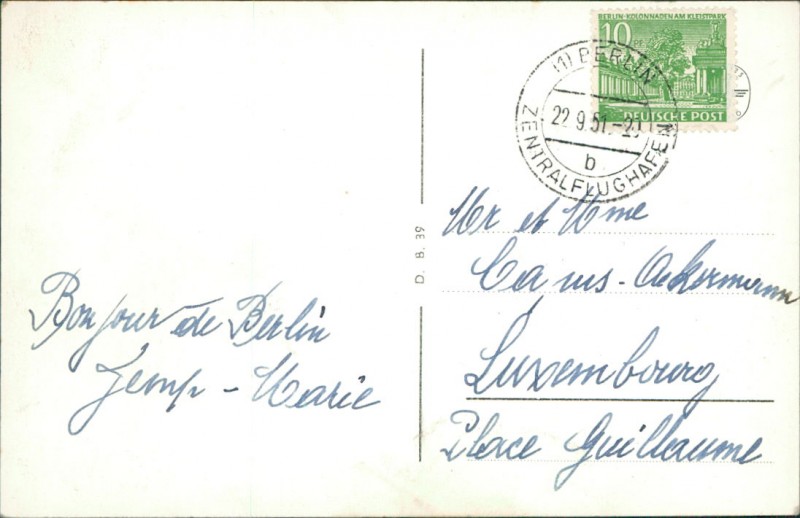 Bonjour de Berlin
Jemp - Marie
D. B. 39
BERLIN-KOLONNADEN AM KLEISTPARK
10 PF
DEUTSCHE POST
(1) BERLIN
22.9.51.-20
b
ZENTRALFLUGHAFEN
Mr et Mme
Ackermann
Luxembourg
Place Guillaume